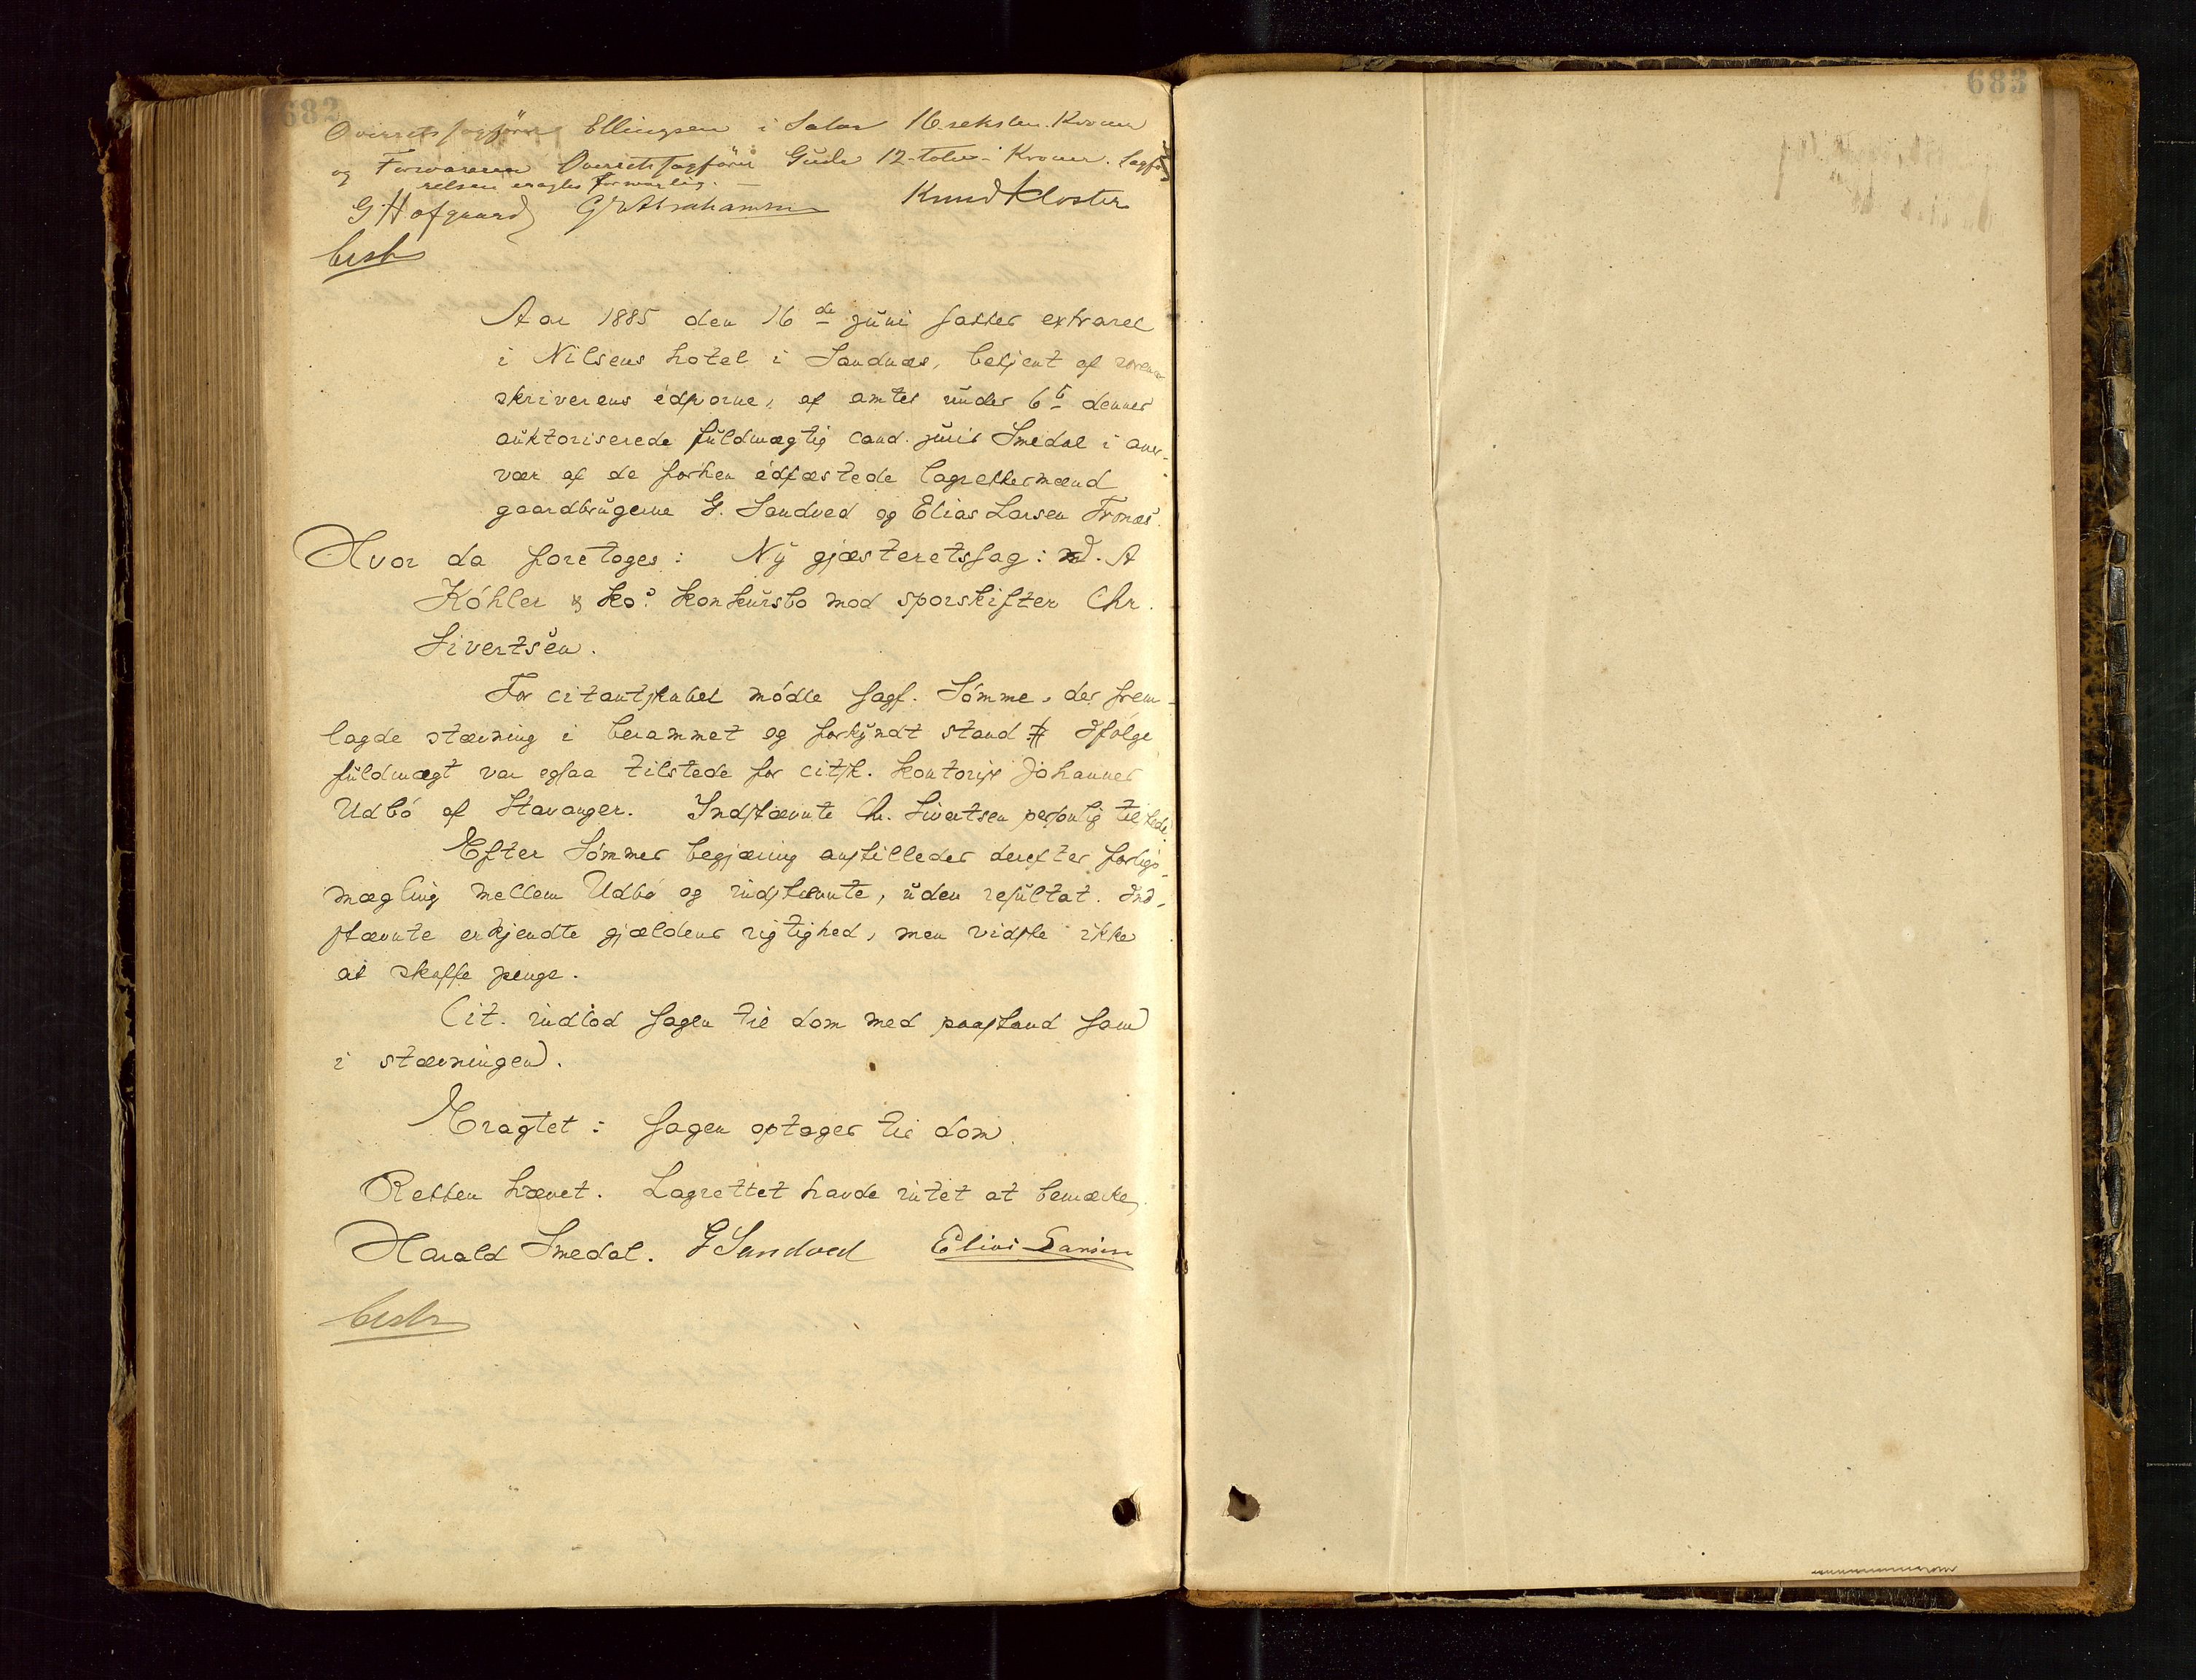 682
683
Overretssagfører Ellingsen i Salær 16-seksten-Kroner
og Forsvareren Overretssagfører Gude 12-tolv-Kroner. Sagfø
relsen eragtes forsvarlig. —
G Hofgaard Knud Kloster
Aar 1885 den 16de juni sattes extraret
i Nilsens hotel i Sandnæs, betjent af soren-
skriverens edsvorne, af amtet under 6te dennes
auktoriserede fuldmægtig cand. juris Smedal i over-
vær af de forhen edfæstede lagrettemænd
gaardbrugerne G. Sandved og Elias Larsen Tronæs.
Hvor da foretoges: Ny gjæsteretssag: A
Köhler & Ko's konkursbo mod sporskifter Chr.
Sivertsen.
For citantskabet mödte sagf. Sömme, der frem-
lagde stævning i berammet og forkyndt stand # Ifølge
fuldmagt var ogsaa tilstede for citsk. kontorist Johannes
Udbö af Stavanger. Indstævnte Chr. Sivertsen personlig tilstede.
Efter Sömmes begjæring anstilledes derefter forligs-
mægling mellem Udbö og indstævnte, uden resultat. Ind-
stævnte erkjendte gjældens rigtighed, men vidste ikke
at skaffe penge.
Cit. indlod sagen til dom med paastand som
i stævningen.
Eragtet: Sagen optages til dom.
Retten hævet. Lagrettet havde intet at bemærke
Harald Smedal. G Sandved Elias Larsen